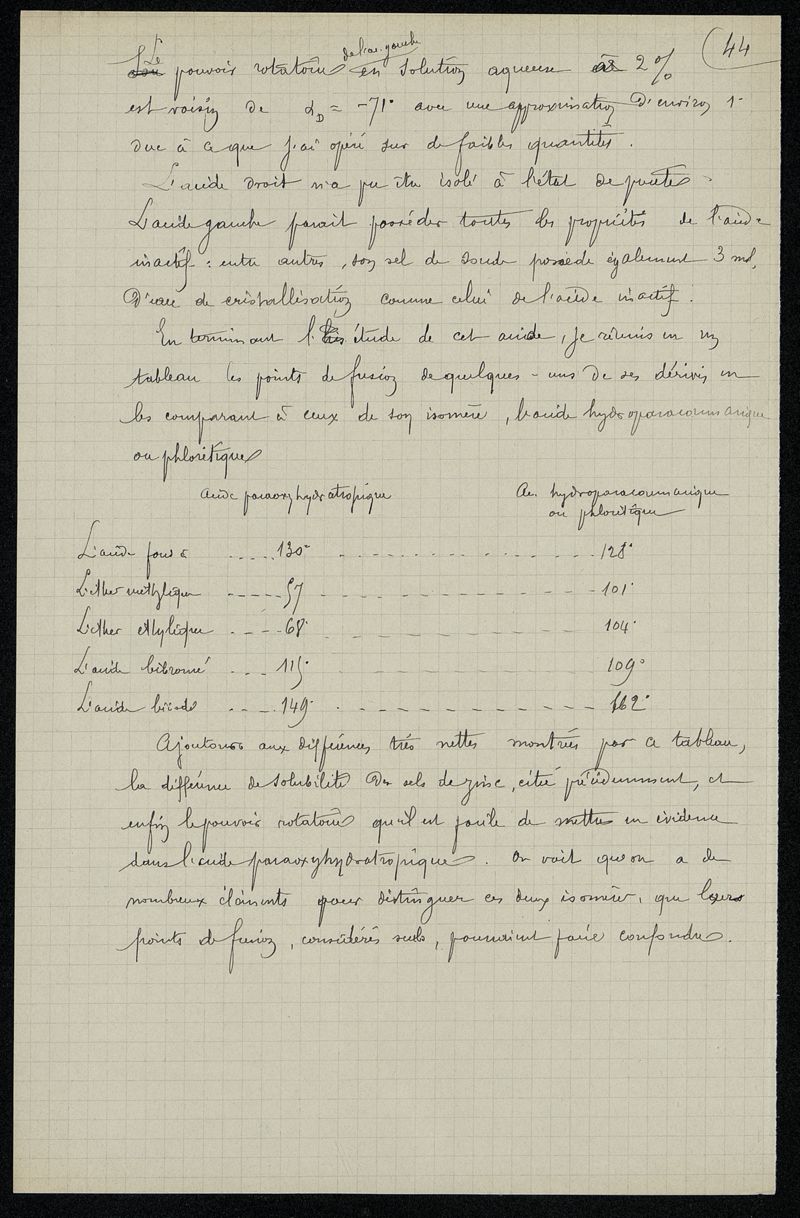 (44
Le pouvoir rotatoire de l'ac. gauche en solution aqueuse à 2 %
est voisin de αD = -71° avec une approximation d'environ 1°
due à ce que j'ai opéré sur de faibles quantités.
L'acide droit n'a pu être isolé à l'état de pureté.
L'acide gauche parait posséder toutes les propriétés de l'acide
inactif : entre autres, son sel de soude possède également 3 mol.
d'eau de cristallisation comme celui de l'acide inactif.
En terminant l'étude de cet acide, je réunis en un
tableau les points de fusion de quelques-uns de ses dérivés en
les comparant à ceux de son isomère, l'acide hydroparacoumarique
ou phlorétique
Acide paraoxyhydratropique Ac. hydroparacoumarique
ou phlorétique
L'acide fond à .... 130° ... 128°
L'éther méthylique ..... 57 ... 101°
L'éther éthylique .... 68° ... 104°
L'acide bibromé ... 115° ... 109°
L'acide biiodé .... 149° ... 162°
Ajoutons aux différences très nettes montrées par ce tableau,
la différence de solubilité des sels de zinc, citée précédemment, et
enfin le pouvoir rotatoire qu'il est facile de mettre en évidence
dans l'acide paraoxyhydratropique. On voit qu'on a de
nombreux éléments pour distinguer ces deux isomères, que leurs
points de fusion, considérés seuls, pourraient faire confondre.